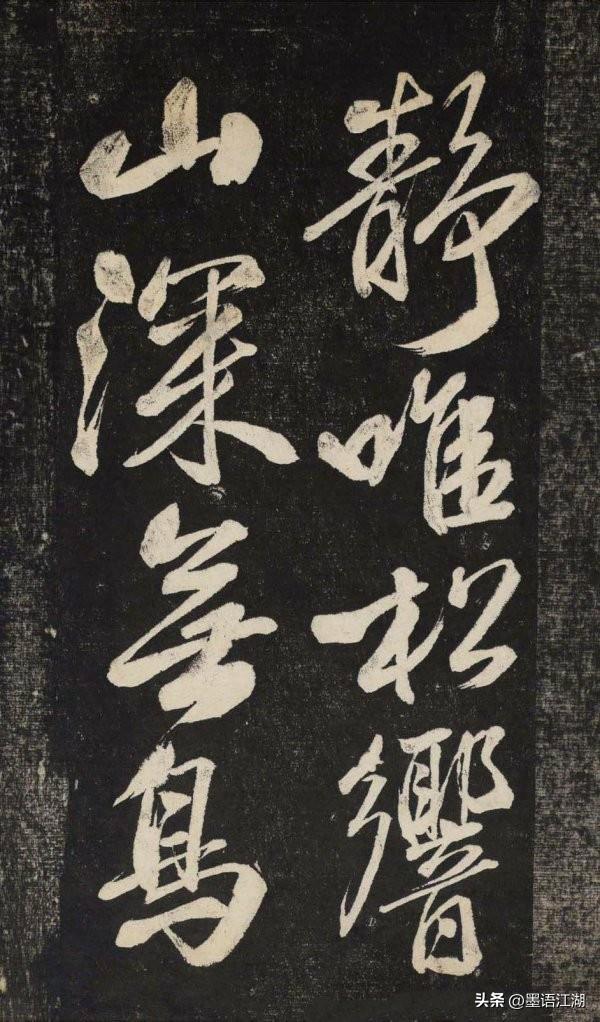 靜唯松響
山深無鳥
头条 @墨语江湖